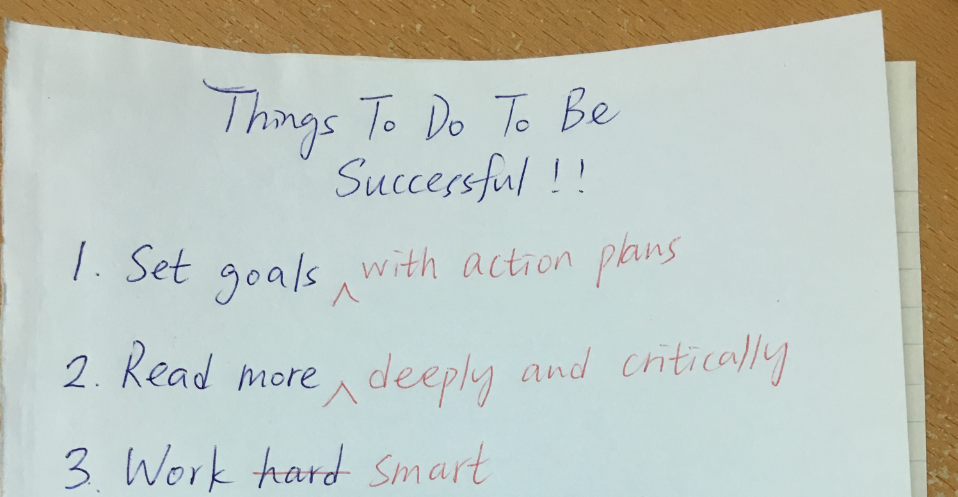 Things To Do To Be
Successful !!
1. Set goals ^ with action plans
2. Read more ^ deeply and critically
3. Work hard smart